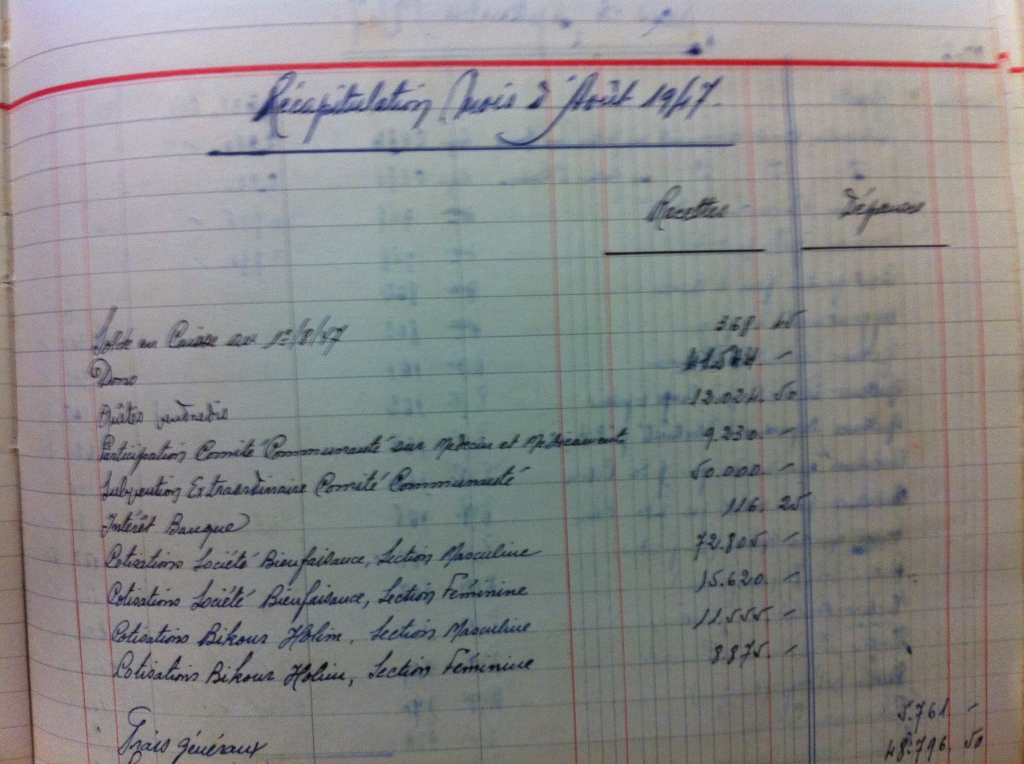 Récapitulation Mois d'Août 1947.
Recettes Dépenses
Solde en Caisse au 1er/8/47 368. 45
Dons 41.544 -
Quêtes 12.024. 50
Participation Comité Communauté sur Médecin et Médicament 9.230. -
Subvention Extraordinaire Comité Communauté 50.000. -
Intérêt Banque 116. 25
Cotisations Société Bienfaisance, Section Masculine 72.805. -
Cotisations Société Bienfaisance, Section Féminine 15.620. -
Cotisations Bikour Holim, Section Masculine 11.555. -
Cotisations Bikour Holim, Section Féminine 8.875. -
Frais généraux 5.761 -
48.796. 50